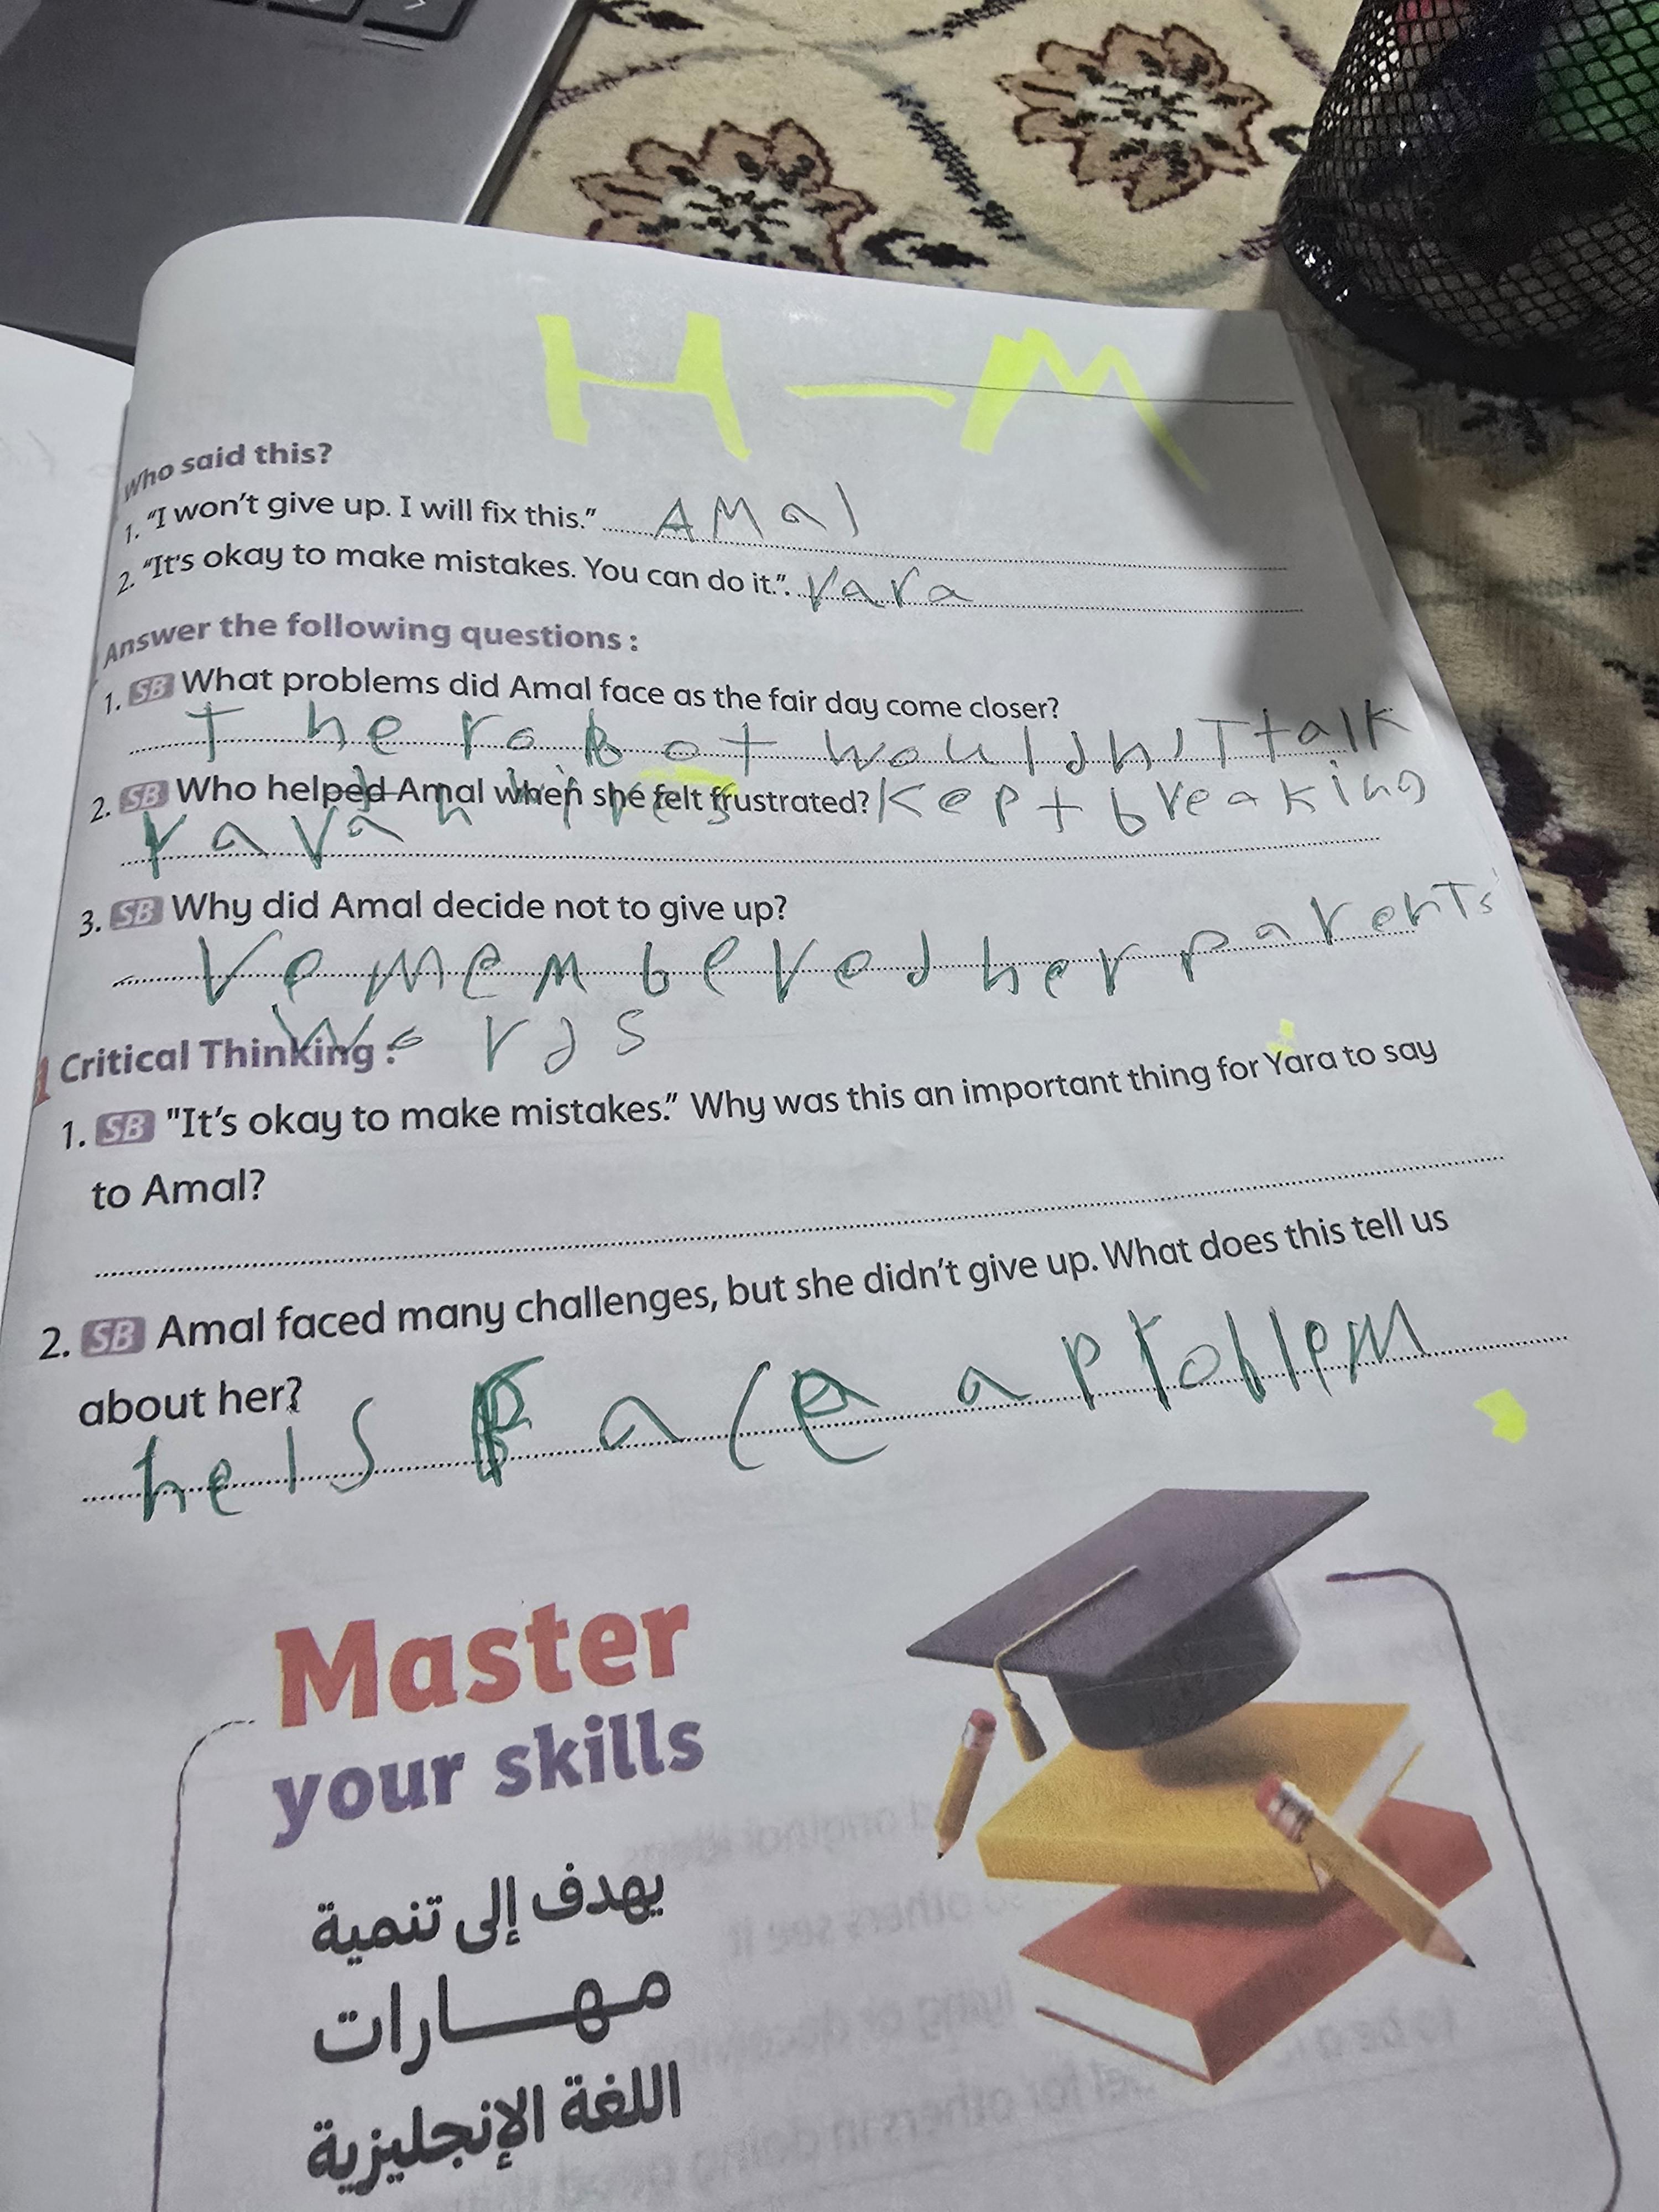 H-M
Who said this?
1. “I won't give up. I will fix this.” AMal
2. “It's okay to make mistakes. You can do it.”. Yara
Answer the following questions :
1. SB What problems did Amal face as the fair day come closer?
The robot wouldn'T talk
2. SB Who helped Amal when she felt frustrated? Kept breaking
Yara
3. SB Why did Amal decide not to give up?
remembered her parents
words
Critical Thinking :
1. SB "It's okay to make mistakes.” Why was this an important thing for Yara to say
to Amal?
2. SB Amal faced many challenges, but she didn't give up. What does this tell us
about her?
he is Face a problem
Master
your skills
يهدف إلى تنمية
مهـــارات
اللغة الإنجليزية